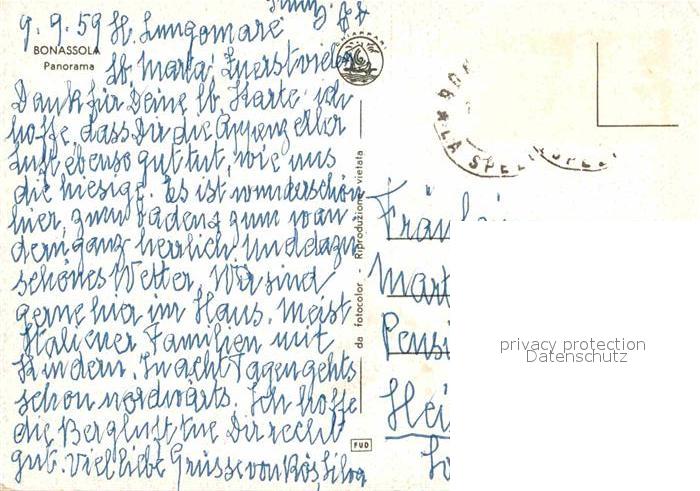 9.9.59 H. Lungomare
BONASSOLA
Panorama
lb. Marta, Zuerst vielen
Dank für Deine lb. Karte. ich
hoffe, dass Dir die Appenzeller
Luft ebenso gut tut, wie uns
die hiesige. Es ist wunderschön
hier, zum baden & zum wan-
dern ganz herrlich. Und dazu
schönes Wetter. Wir sind
gerne hier im Haus. Meist
Italiener Familien mit
Kindern. In acht Tagen gehts
schon nordwärts. Ich hoffe
die Bergluft tue Dir recht
gut. Viel liebe Grüsse von Rös, Silva
da fotocolor - Riproduzione vietata
FUD
LA SPEZ
Fräulein
Mart
Pensi
Hei
privacy protection
Datenschutz